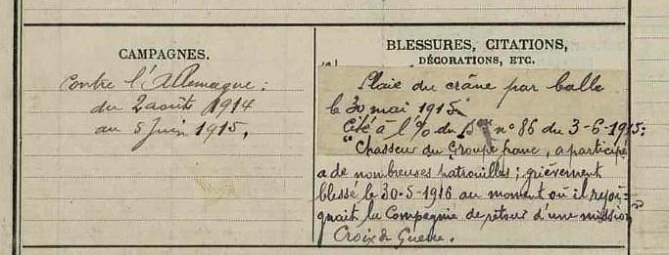 CAMPAGNES.
Contre l'Allemagne :
du 2 août 1914
au 5 Juin 1915,
BLESSURES, CITATIONS,
DÉCORATIONS, ETC.
Plaie du crâne par balle
le 30 mai 1915
Cité à l'% du Bon n° 86 du 3-6-1915:
"Chasseur du Groupe franc, a participé
a de nombreuses patrouilles ; grièvement
blessé le 30-5-1916 au moment où il rejoi-
gnait la Compagnie de retour d'une mission"
Croix de Guerre.